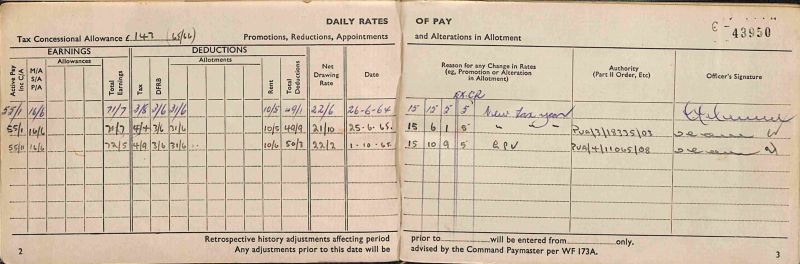 DAILY RATES OF PAY
43950
Tax Concessional Allowance £ 147 (65/66) Promotions, Reductions, Appointments and Alterations in Allotment
EARNINGS DEDUCTIONS
Active Pay Inc C/A M/A S/A P/A Allowances Total Earnings Tax DFRB Allotments Rent Total Deductions Net Drawing Rate Date Reason for any Change in Rates (eg, Promotion or Alteration in Allotment) Authority (Part II Order, Etc) Officer's Signature
EX.CR
55/1 16/6 71/7 3/8 3/6 31/6 10/5 49/1 22/6 26-6-64 15 15 5 5 New Tax year
55/1 16/6 71/7 4/4 3/6 31/6 10/5 49/9 21/10 25-6-65. 15 6 1 5 " " " PUA/3/18335/03
55/11 16/6 72/5 4/9 3/6 31/6 10/6 50/3 22/2 1-10-65. 15 10 9 5 PUA/4/11065/08
Retrospective history adjustments affecting period prior to will be entered from only.
Any adjustments prior to this date will be advised by the Command Paymaster per WF 173A.
2 3